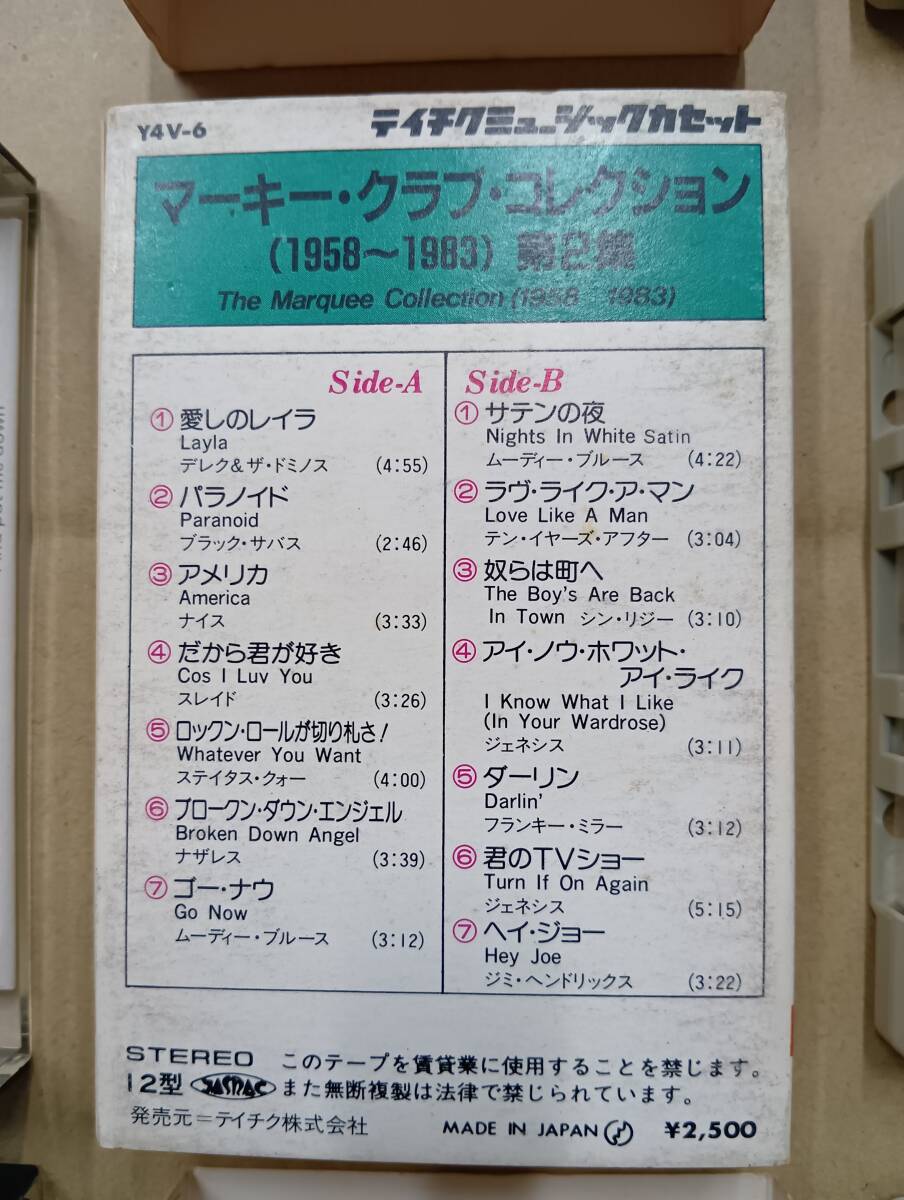 Y4V-6
テイチクミュージックカセット
マーキー・クラブ・コレクション
(1958〜1983) 第2集
The Marquee Collection (1958 1983)
Side-A
① 愛しのレイラ
Layla
デレク&ザ・ドミノス (4:55)
② パラノイド
Paranoid
ブラック・サバス (2:46)
③ アメリカ
America
ナイス (3:33)
④ だから君が好き
Cos I Luv You
スレイド (3:26)
⑤ ロックン・ロールが切り札さ!
Whatever You Want
ステイタス・クォー (4:00)
⑥ ブロークン・ダウン・エンジェル
Broken Down Angel
ナザレス (3:39)
⑦ ゴー・ナウ
Go Now
ムーディー・ブルース (3:12)
Side-B
① サテンの夜
Nights In White Satin
ムーディー・ブルース (4:22)
② ラヴ・ライク・ア・マン
Love Like A Man
テン・イヤーズ・アフター (3:04)
③ 奴らは町へ
The Boy's Are Back
In Town シン・リジー (3:10)
④ アイ・ノウ・ホワット・
アイ・ライク
I Know What I Like
(In Your Wardrose)
ジェネシス (3:11)
⑤ ダーリン
Darlin'
フランキー・ミラー (3:12)
⑥ 君のTVショー
Turn If On Again
ジェネシス (5:15)
⑦ ヘイ・ジョー
Hey Joe
ジミ・ヘンドリックス (3:22)
STEREO このテープを賃貸業に使用することを禁じます。
12型 JASRAC また無断複製は法律で禁じられています。
発売元=テイチク株式会社 MADE IN JAPAN ¥2,500